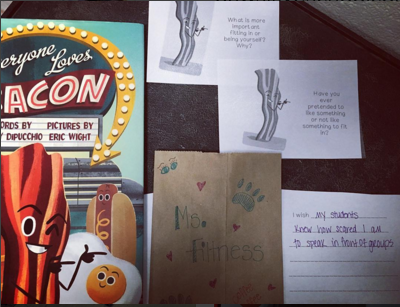 eryone Loves
BACON
ORDS BY PICTURES BY
DIPUCCHIO ERIC WIGHT
What is more
important
fitting in or
being yourself?
Why?
Have you
ever
pretended to
like something
or not like
something to fit
in?
Ms.
I wish my students
knew how scared I am
to speak in front of groups